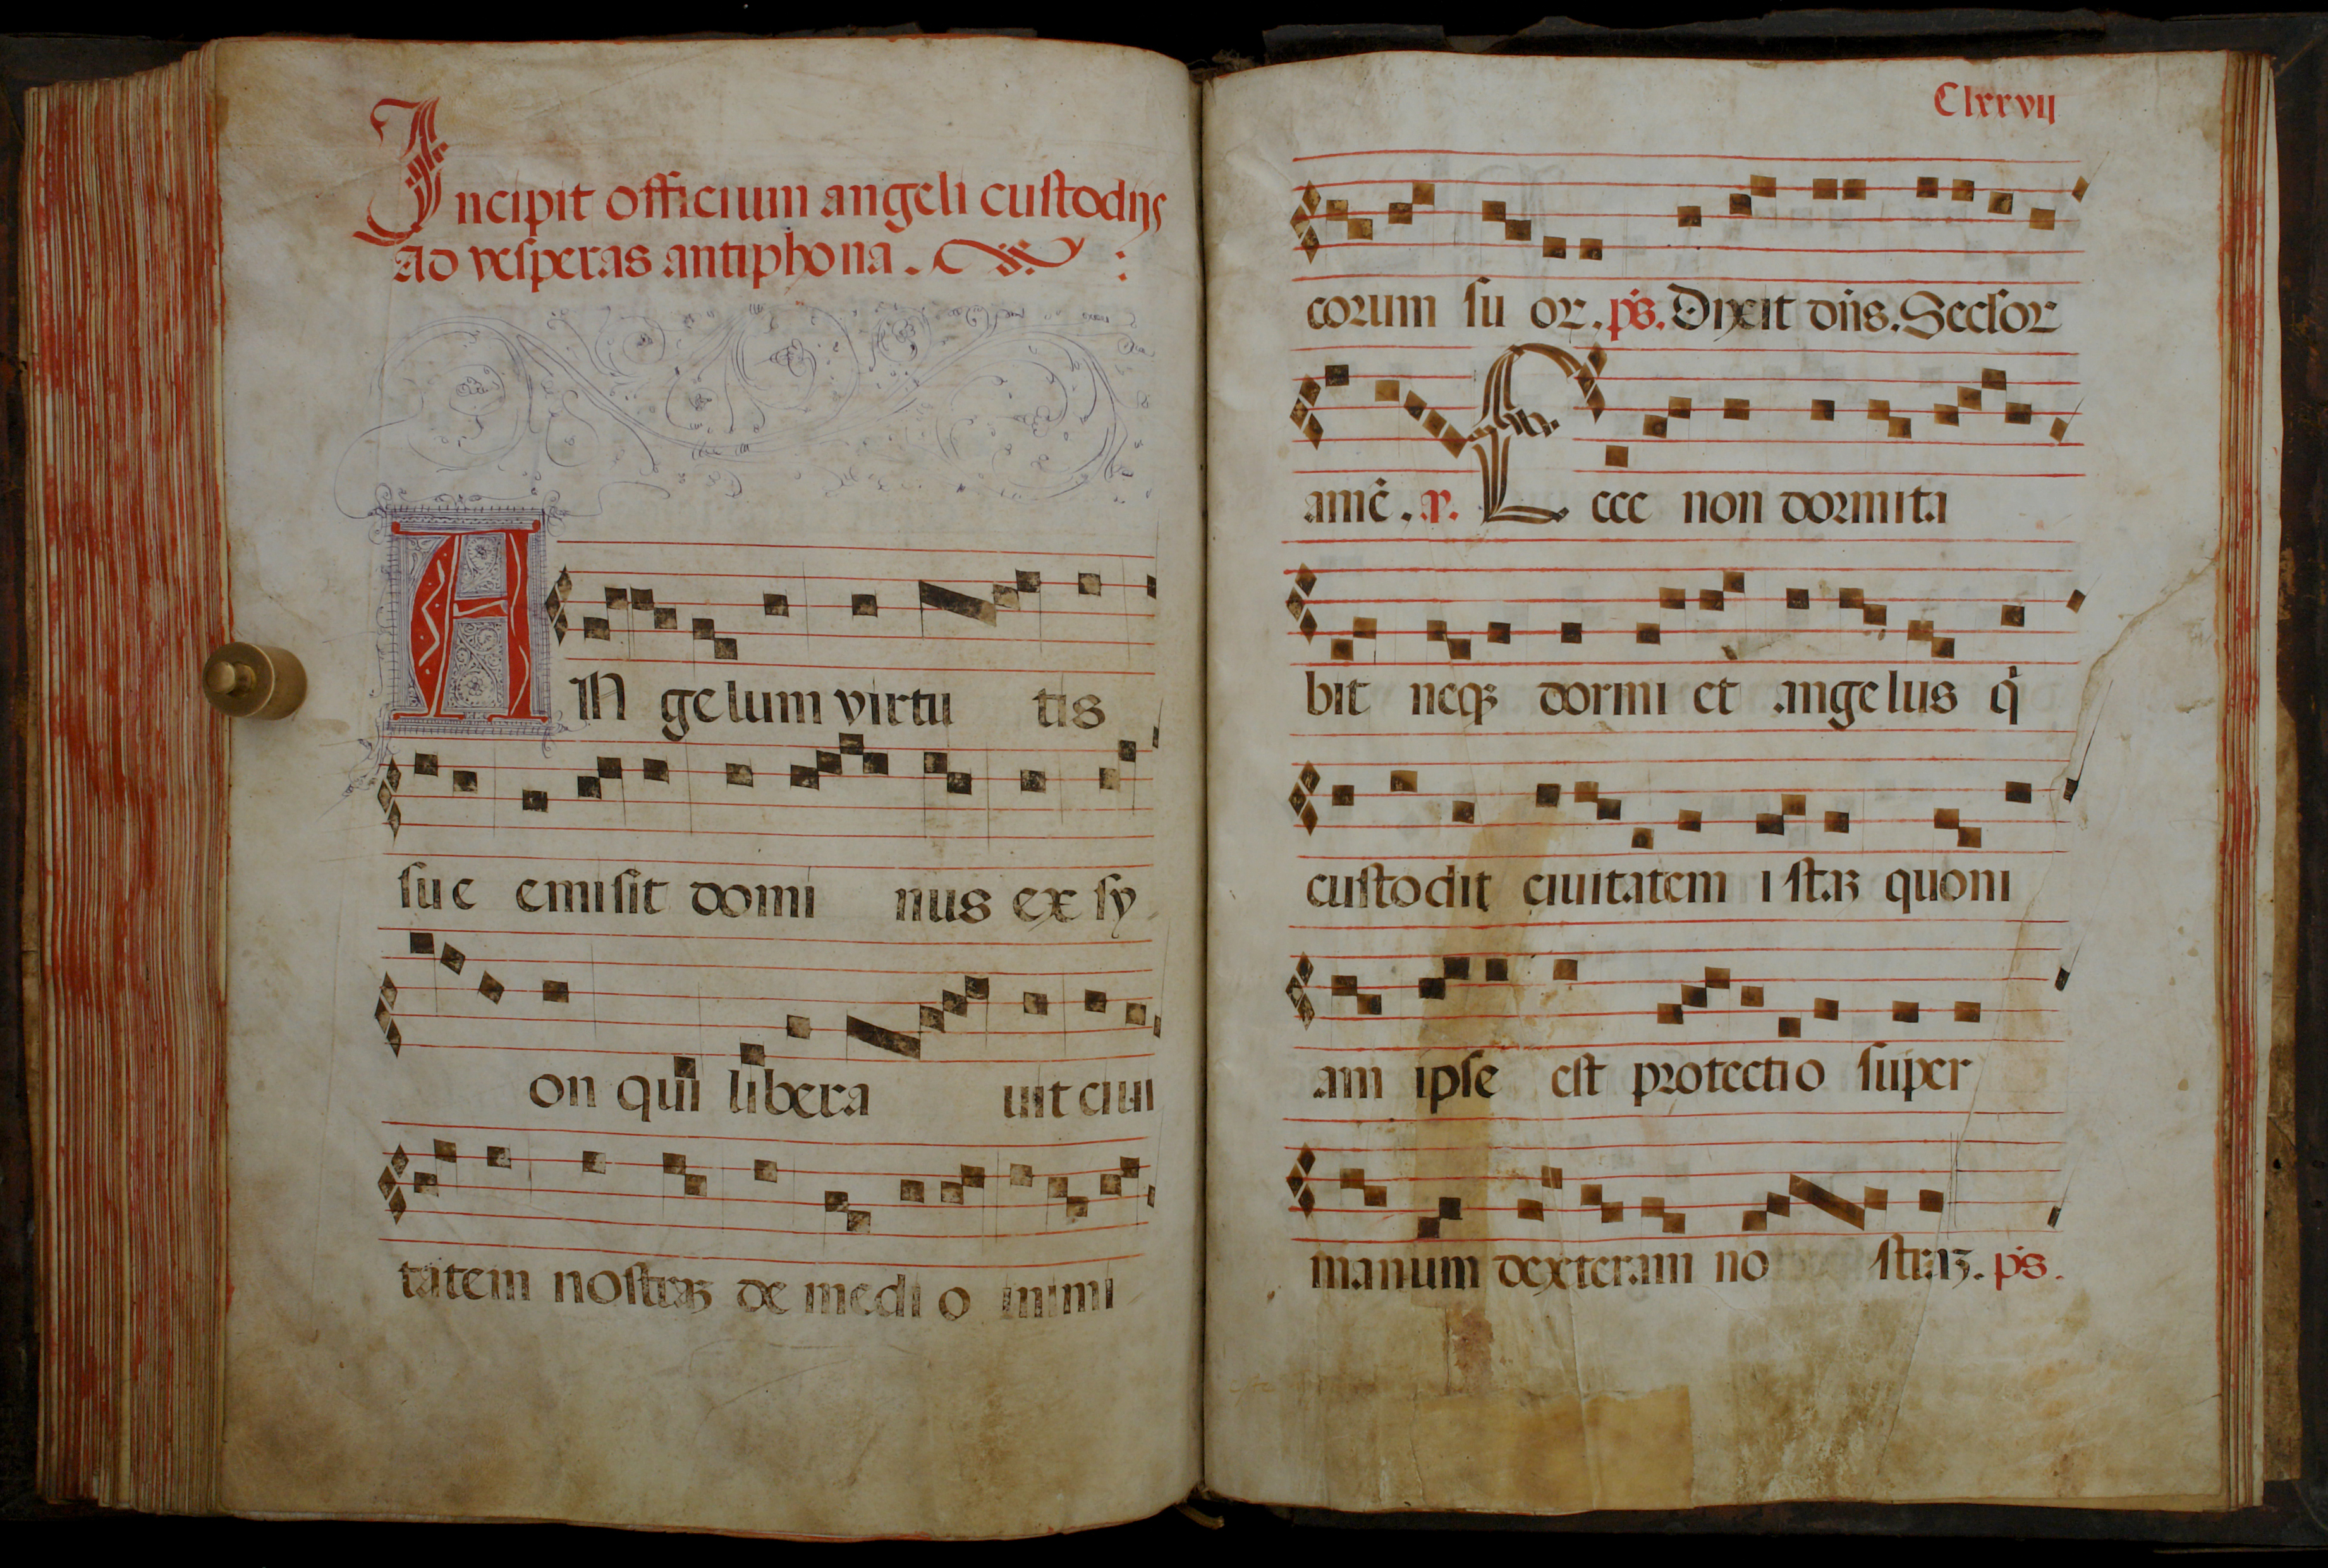 Incipit officium angeli custodijs
Ad vesperas antiphona.
AN gelum virtu tis
sue emisit domi nus ex sy
on qui libera uit ciui
tatem nostraꝫ de medi o inimi
Clxxvii
corum su or. ps. Dixit dn̄s. Seclor
amē. a. Ecce non dormita
bit neqꝫ dormiet angelus q
custodit ciuitatem istaꝫ quoni
am ipse est protectio super
manum dexteram no straꝫ. ps.